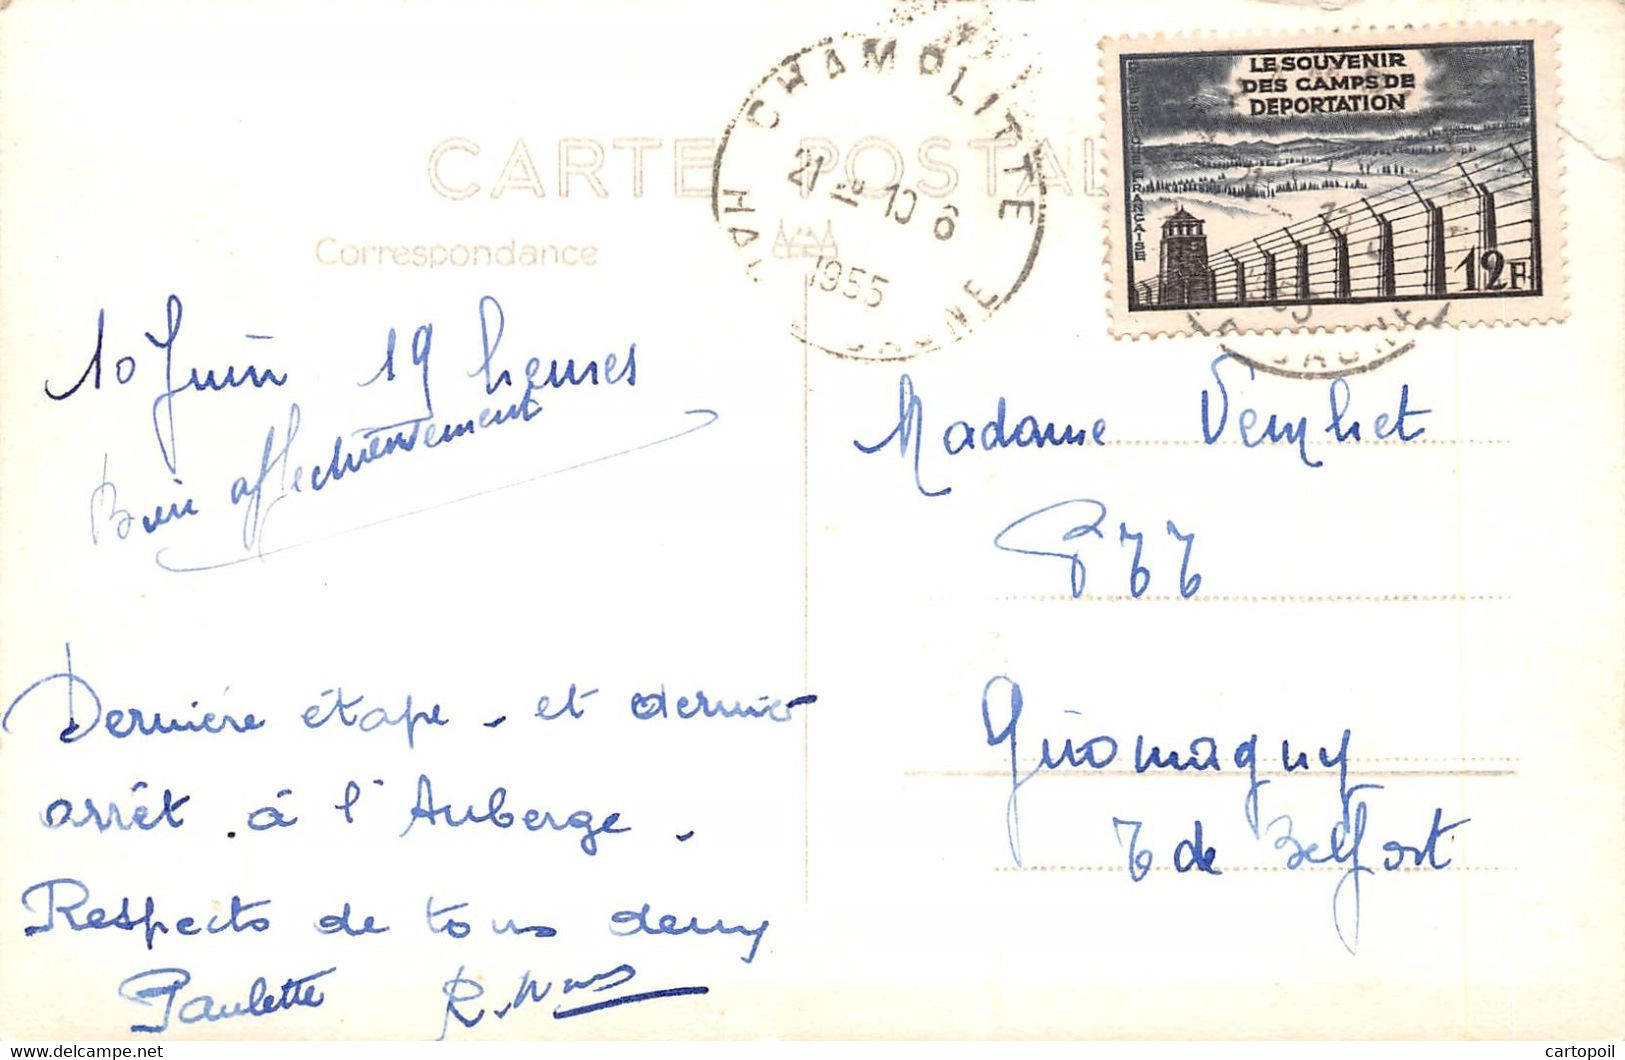 CARTE POSTALE
Correspondance
CHAMPLITTE
21 H 10 6
1955
HAUTE SAONE
LE SOUVENIR
DES CAMPS DE
DEPORTATION
REPUBLIQUE FRANÇAISE
POSTES
12F
10 Juin 19 heures
Bien affectueusement
Dernière étape - et dernier
arrêt . à l'Auberge -
Respects de tous deux
Paulette R.
Madame
P T T
Giromagny
T de Belfort
cartopoil